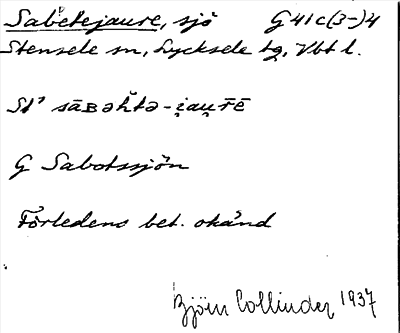 Sabetejaure, sjö G41c(3-)4
Stensele sn, Lycksele tg, Vbt l.
St' sāʙəh̆tə-i̯au̯r̄ē
G Sabotssjön
Förledens bet. okänd
Björn Collinder 1937